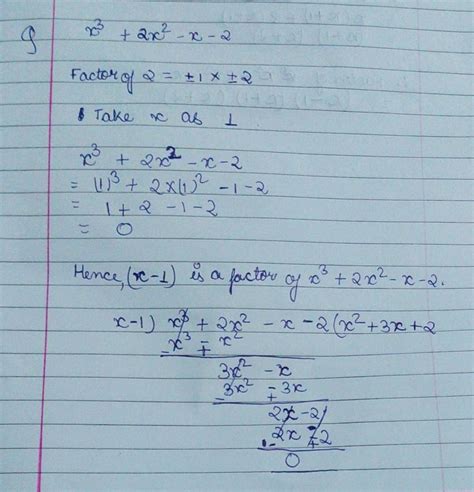 Q x³ + 2x² - x - 2
Factor of 2 = ±1 × ±2
Take x as 1
x³ + 2x² - x - 2
= (1)³ + 2×(1)² - 1 - 2
= 1 + 2 - 1 - 2
= 0
Hence, (x-1) is a factor of x³ + 2x² - x - 2.
x-1) x³ + 2x² - x - 2 (x² + 3x + 2
x³ - x²
- +
3x² - x
3x² - 3x
- +
2x - 2
2x - 2
- +
0